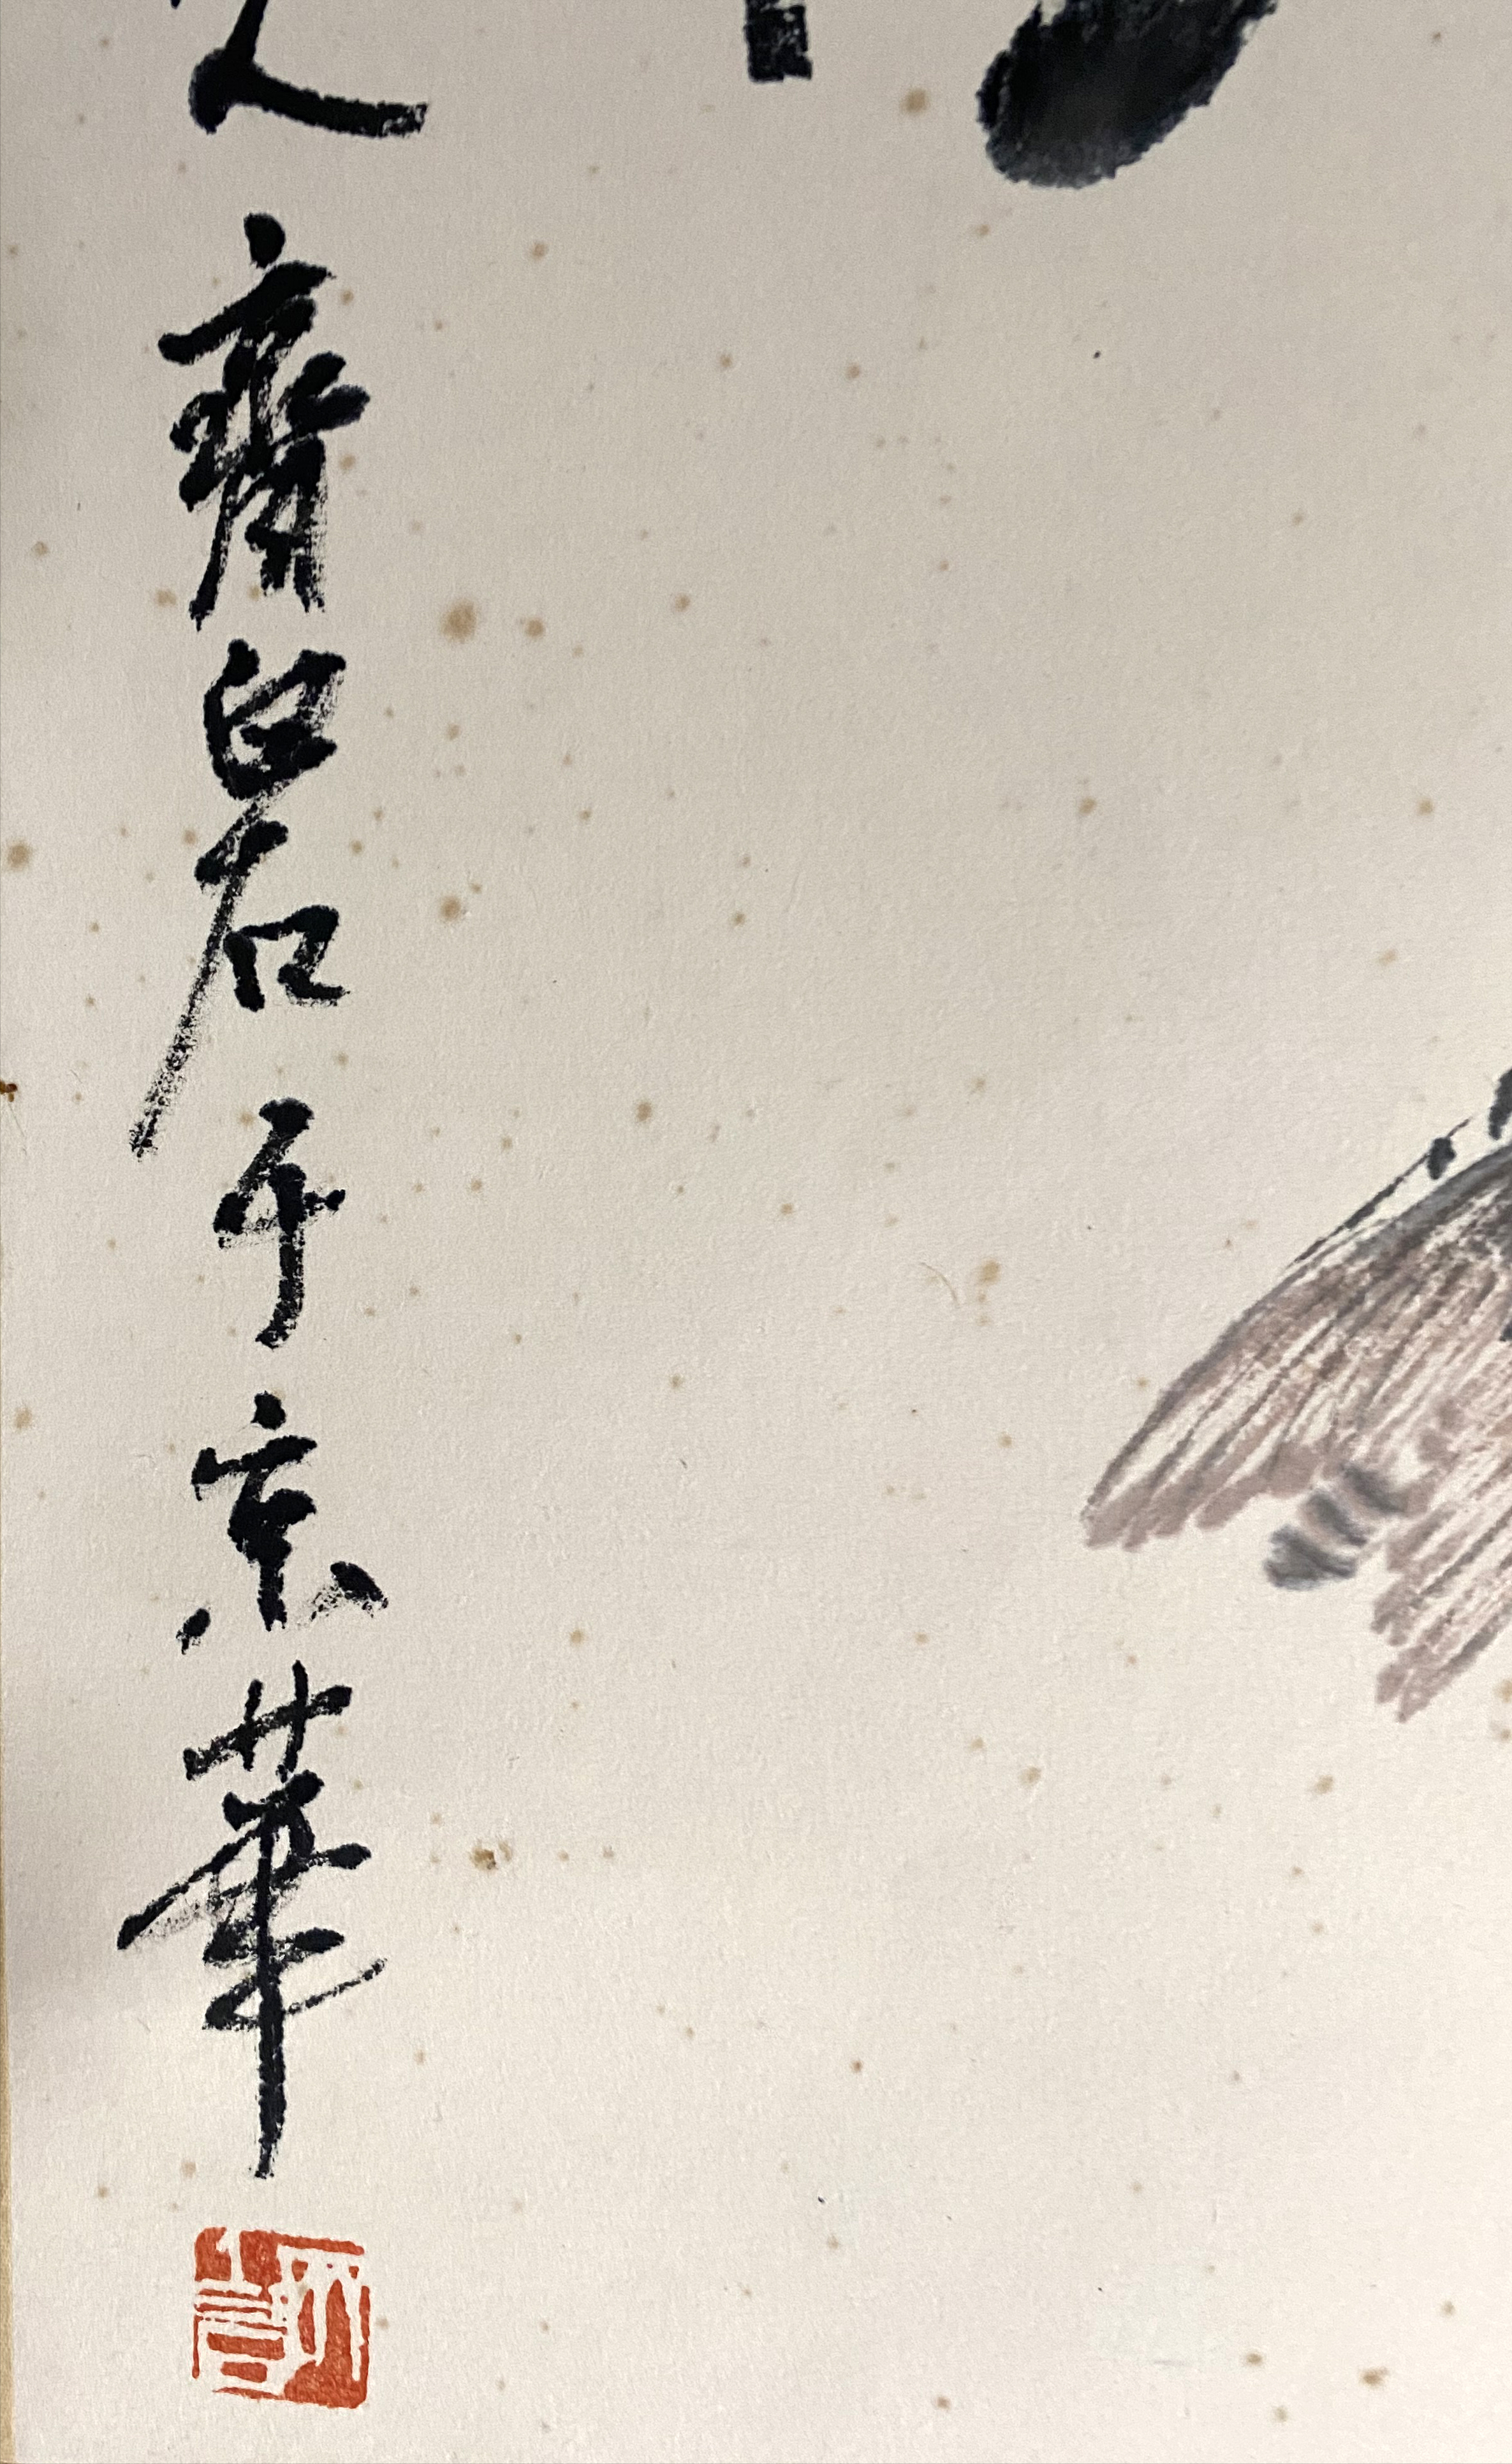 齊白石于京華